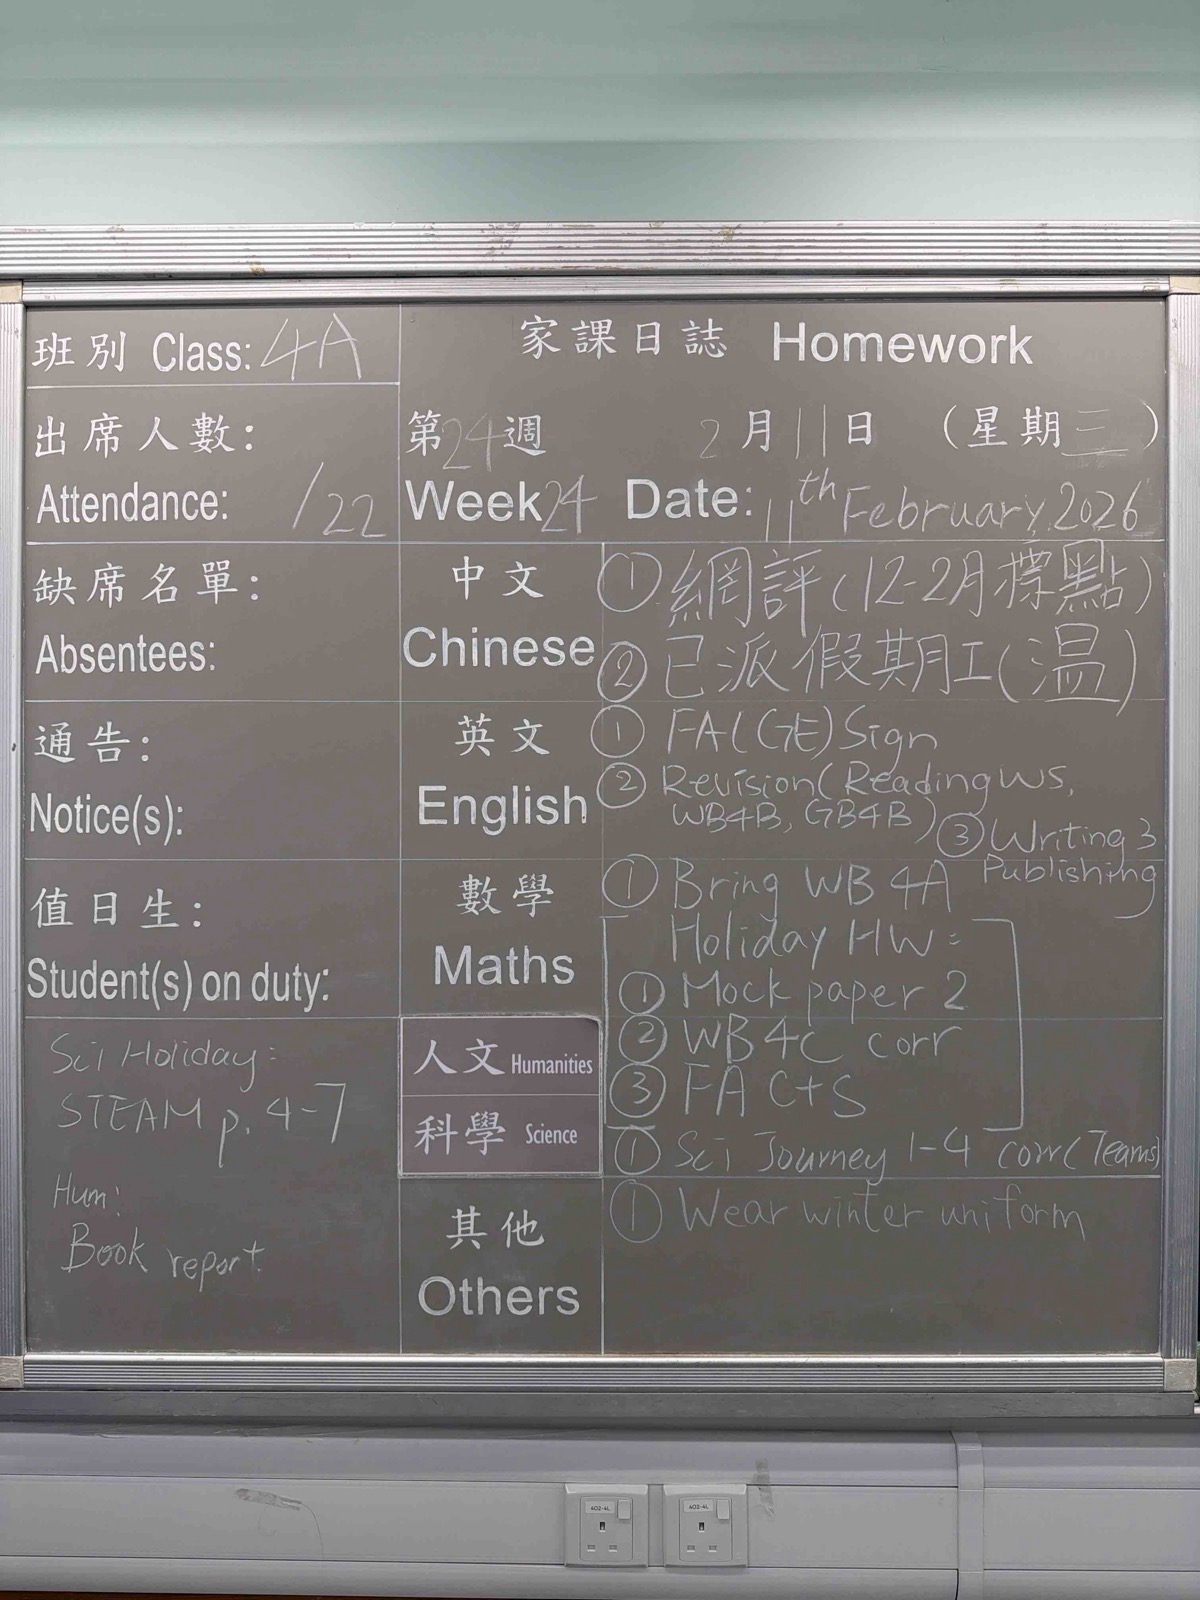 班別 Class: 4A
家課日誌 Homework
出席人數:
Attendance: /22
第24週 2月11日 (星期三)
Week24 Date: 11th February, 2026
缺席名單:
Absentees:
中文
Chinese
① 網評(12-2月標點)
② 已派假期工(溫)
通告:
Notice(s):
英文
English
① FA(GE) Sign
② Revision(Reading WS,
WB4B, GB4B) ③ Writing 3
Publishing
值日生:
Student(s) on duty:
數學
Maths
① Bring WB 4A
Holiday HW:
① Mock paper 2
② WB 4C corr
③ FA C+S
Sci Holiday:
STEAM p. 4-7
Hum:
Book report
人文 Humanities
科學 Science
① Sci Journey 1-4 corr(Teams)
其他
Others
① Wear winter uniform
402-4L
402-4L